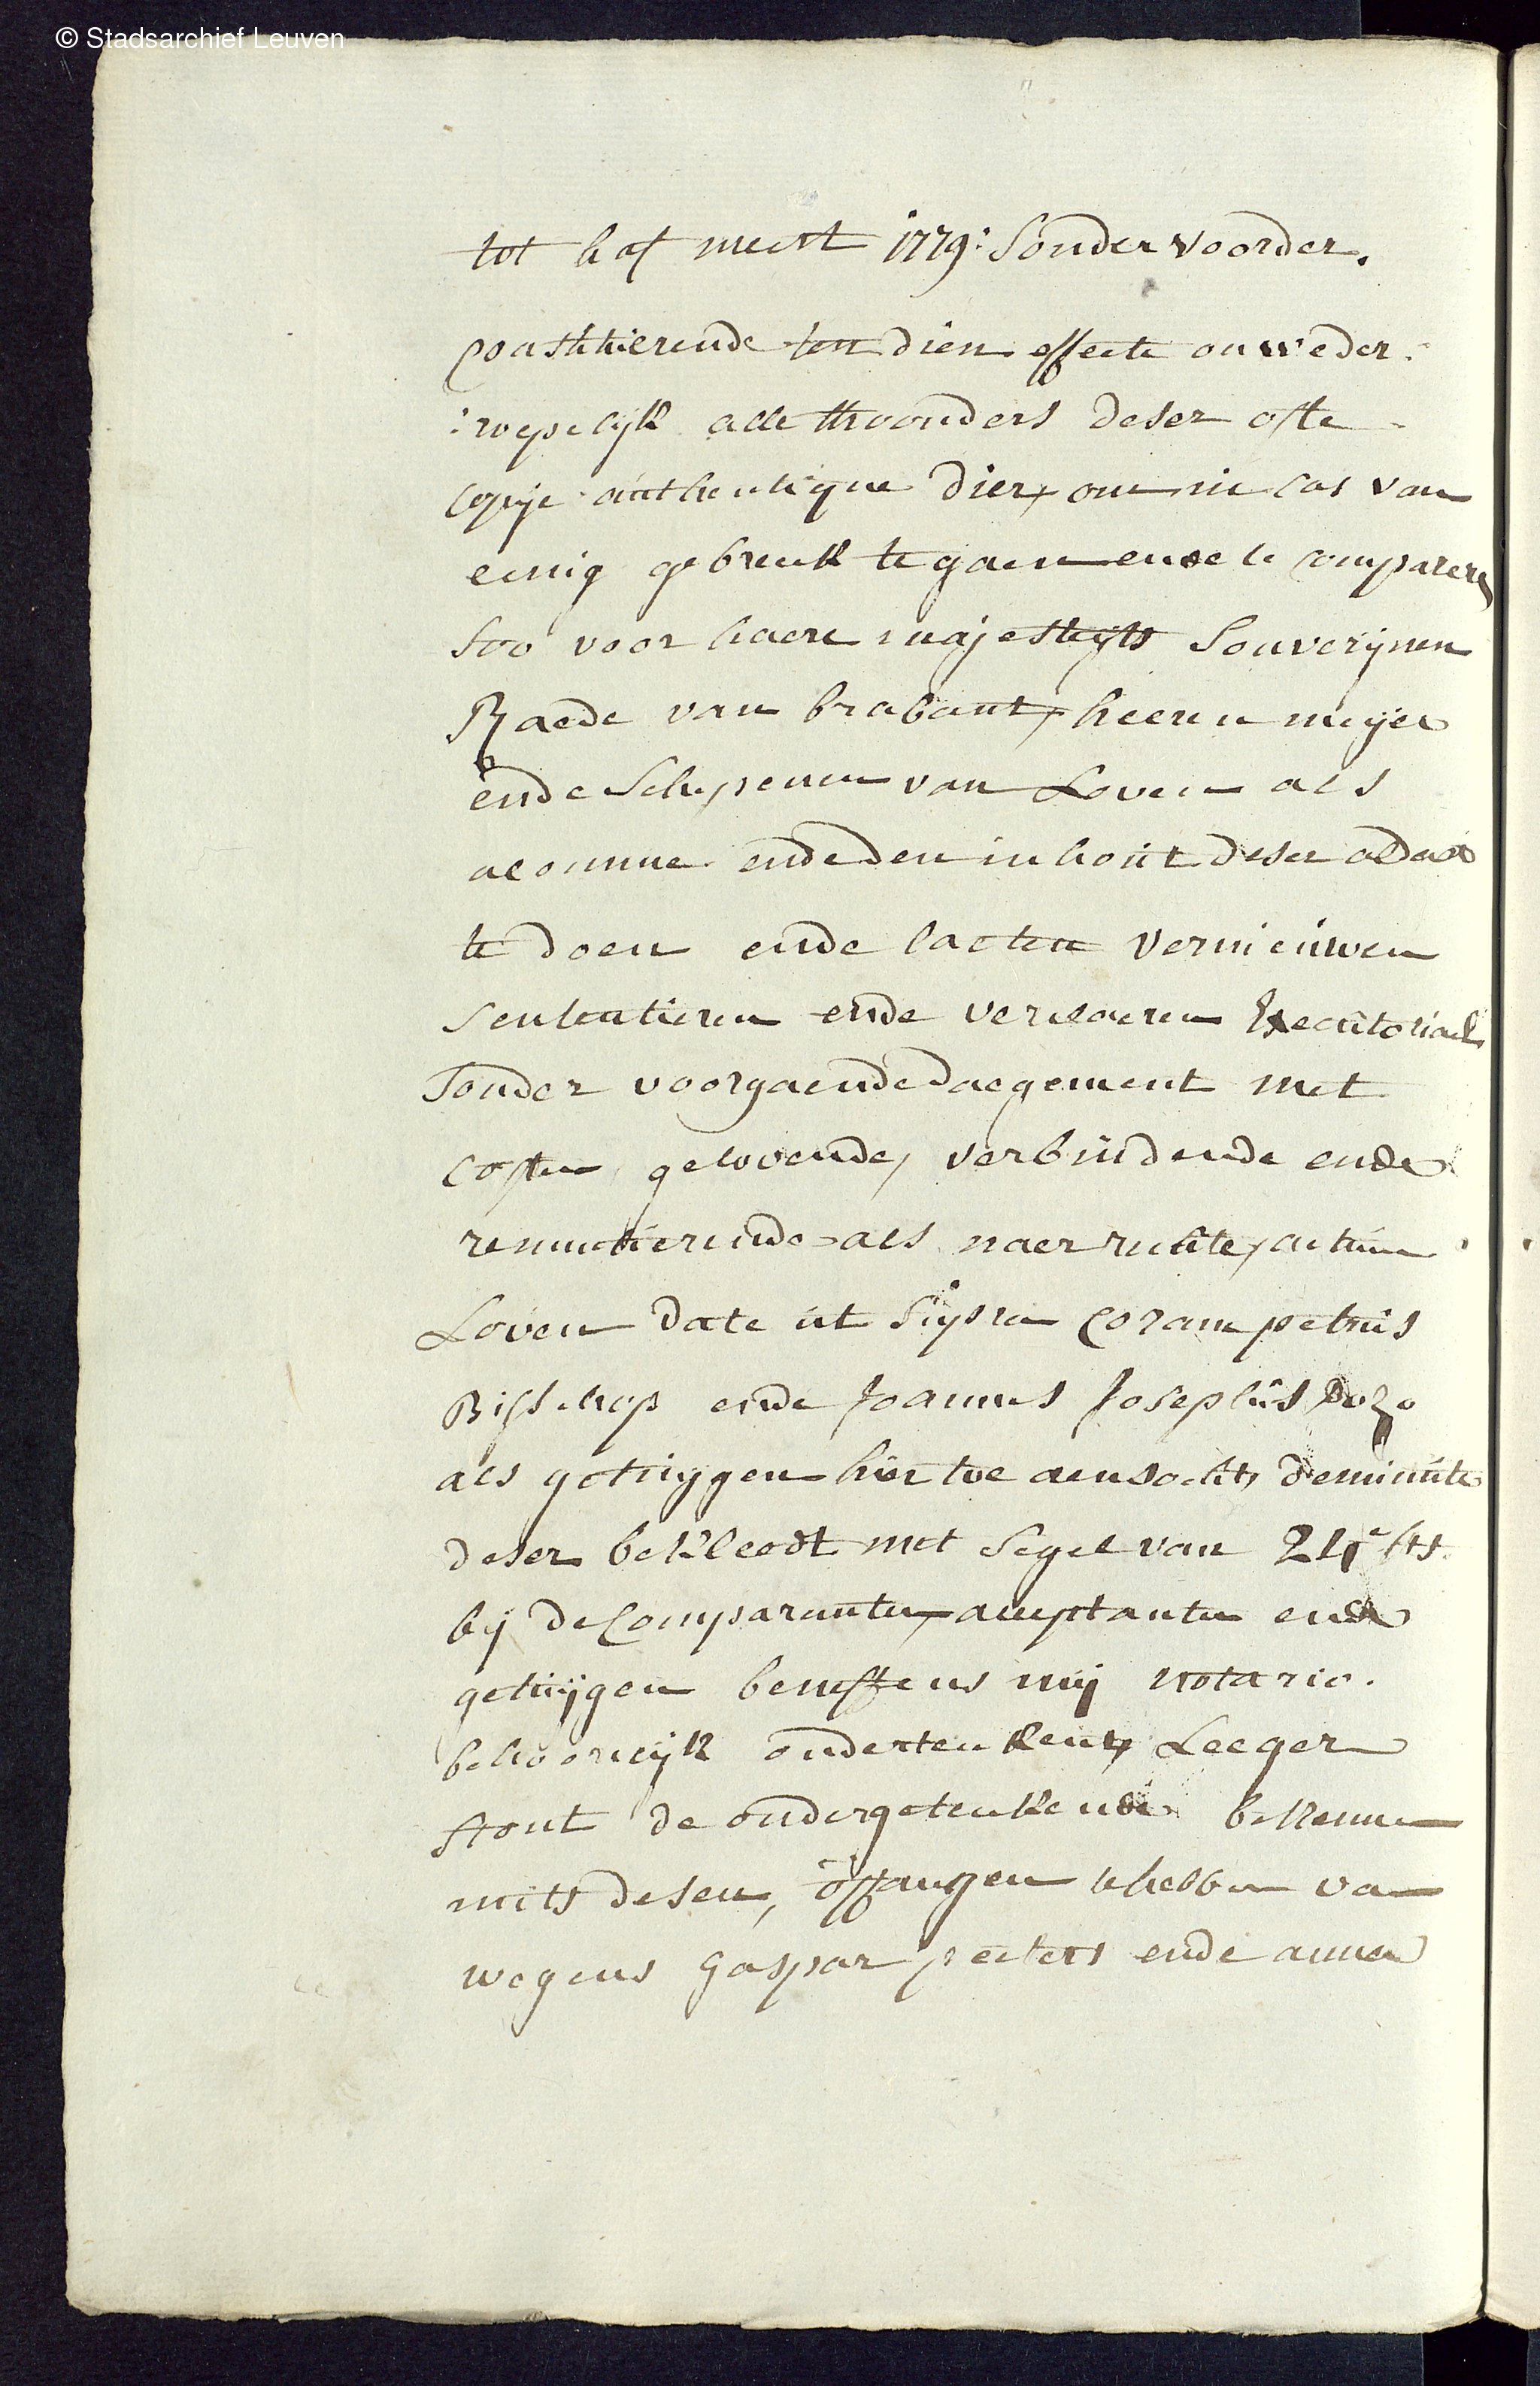 © Stadsarchief Leuven
tot half meert 1779: sonder voorder.
Constitierende ten dien effecte onweder:
:roepelijk alle thoonders deser ofte
copije authentique dier, om in cas van
eenig gebreuk te gaen ende te compareren
soo voor haere majestijts Souverijnen
Raede van brabant, heeren meijer
ende Schepenen van Loven als
alomme ende den inhout deser aldaer
te doen ende laeten vernieuwen
sententieren ende verclaeren Executoriael
sonder voorgaende daegement met
costen, gelovende, verbindende ende
renuntierende als naer rechte, actum
Loven date ut supra Coram petrus
Bisschop ende Joannes Josephus
als getuijgen hier toe aensocht, de minute
deser bekleedt met segel van 24 sts
bij de Comparanten, acceptanten ende
getuijgen beneffens mij notario.
behoorelijk onderteekent, Leeger
stont de ondergeteekende bekenne
mits desen, offangen te hebben van
wegens Gaspar peeters ende anna